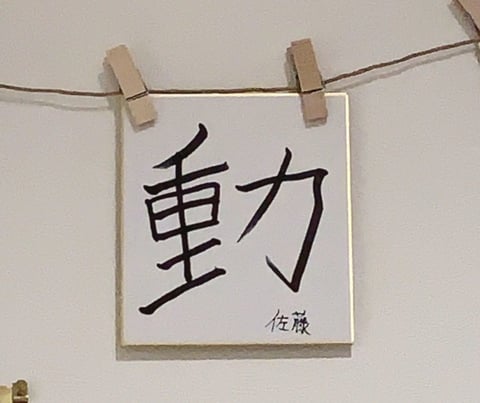 動
佐藤